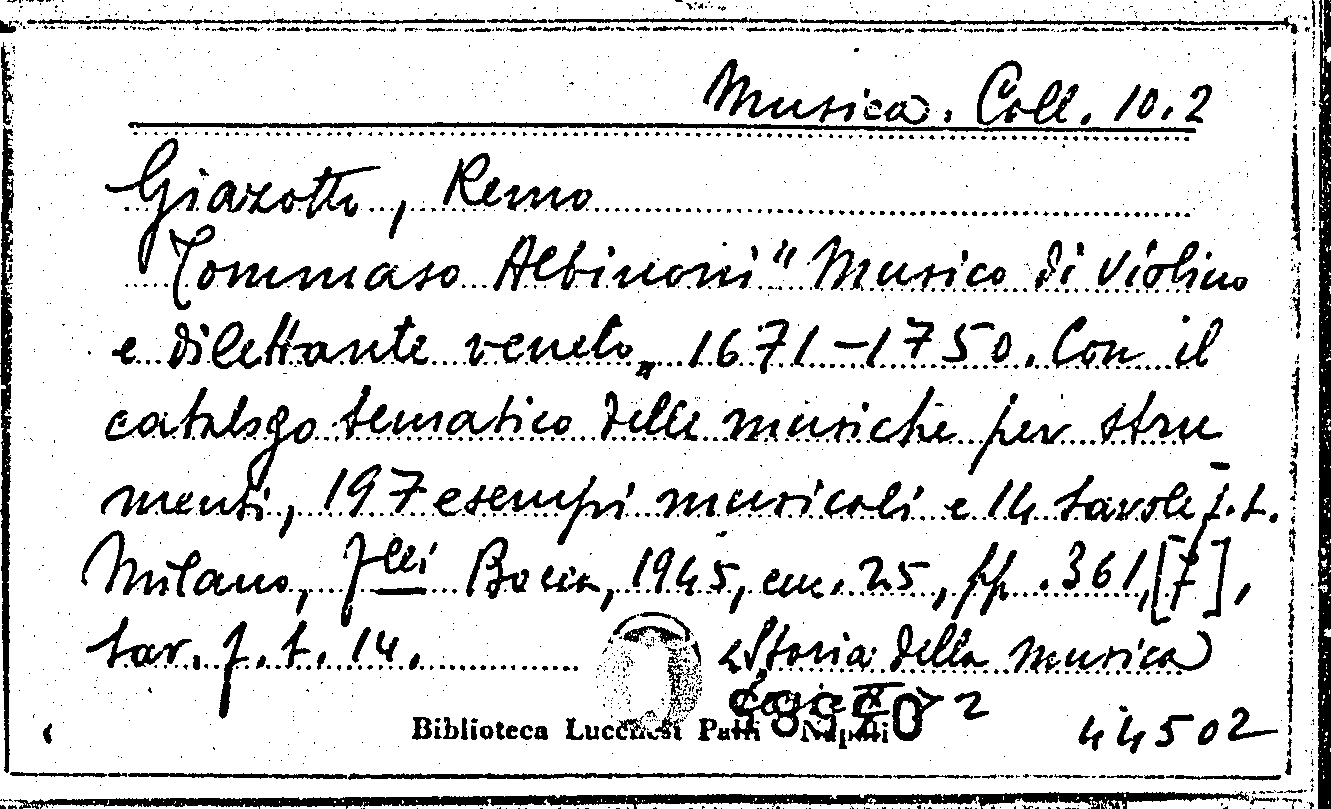 Musica. Coll. 10.2
Giazotto, Remo
Tommaso Albinoni "Musico di violino
e dilettante veneto„ 1671-1750. Con il
catalogo tematico delle musiche per stru
menti, 197 esempi musicali e 14 tavole f.t.
Milano, F.lli Bocca, 1945, cm. 25, pp. 361,[7],
tav. f.t. 14.
«Storia della musica
Serie II» 2
Biblioteca Lucchesi Palli Napoli
44502